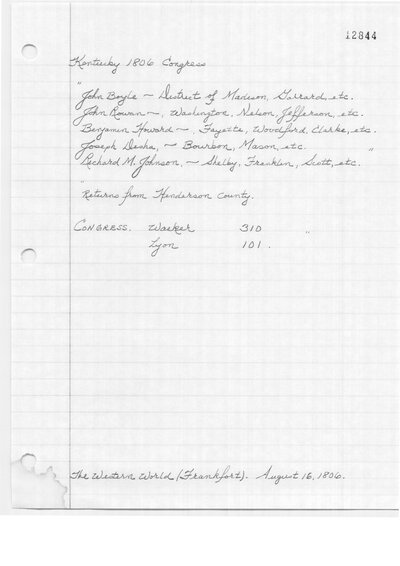 12844
Kentucky 1806 Congress
"
John Boyle — District of Madison, Garrard, etc.
John Rowan —, Washington, Nelson, Jefferson, etc.
Benjamin Howard — Fayette, Woodford, Clarke, etc.
Joseph Desha, — Bourbon, Mason, etc.
Richard M. Johnson, — Shelby, Franklin, Scott, etc. "
"
Returns from Henderson County.
CONGRESS. Walker 310 "
Lyon 101.
The Western World (Frankfort). August 16, 1806.